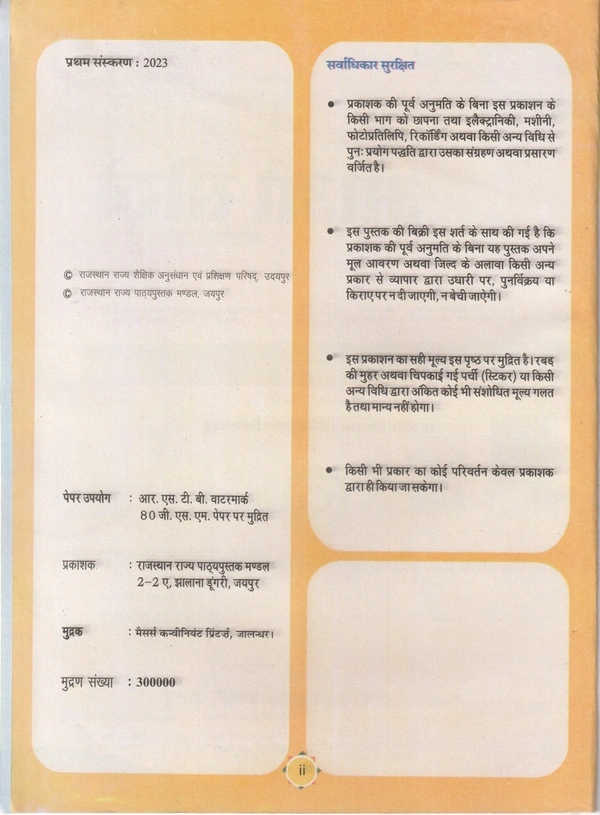 प्रथम संस्करण : 2023
© राजस्थान राज्य शैक्षिक अनुसंधान एवं प्रशिक्षण परिषद्, उदयपुर
© राजस्थान राज्य पाठ्यपुस्तक मण्डल, जयपुर
पेपर उपयोग : आर. एस. टी. बी. वाटरमार्क
80 जी. एस. एम. पेपर पर मुद्रित
प्रकाशक : राजस्थान राज्य पाठ्यपुस्तक मण्डल
2-2 ए, झालाना डूंगरी, जयपुर
मुद्रक : मैसर्स कन्वीनियंट प्रिंटर्ज़, जालन्धर।
मुद्रण संख्या : 300000
सर्वाधिकार सुरक्षित
• प्रकाशक की पूर्व अनुमति के बिना इस प्रकाशन के
किसी भाग को छापना तथा इलैक्ट्रानिकी, मशीनी,
फोटोप्रतिलिपि, रिकॉर्डिंग अथवा किसी अन्य विधि से
पुनः प्रयोग पद्धति द्वारा उसका संग्रहण अथवा प्रसारण
वर्जित है।
• इस पुस्तक की बिक्री इस शर्त के साथ की गई है कि
प्रकाशक की पूर्व अनुमति के बिना यह पुस्तक अपने
मूल आवरण अथवा जिल्द के अलावा किसी अन्य
प्रकार से व्यापार द्वारा उधारी पर, पुनर्विक्रय या
किराए पर न दी जाएगी, न बेची जाऐगी।
• इस प्रकाशन का सही मूल्य इस पृष्ठ पर मुद्रित है। रबड़
की मुहर अथवा चिपकाई गई पर्ची (स्टिकर) या किसी
अन्य विधि द्वारा अंकित कोई भी संशोधित मूल्य गलत
है तथा मान्य नहीं होगा।
• किसी भी प्रकार का कोई परिवर्तन केवल प्रकाशक
द्वारा ही किया जा सकेगा।
ii